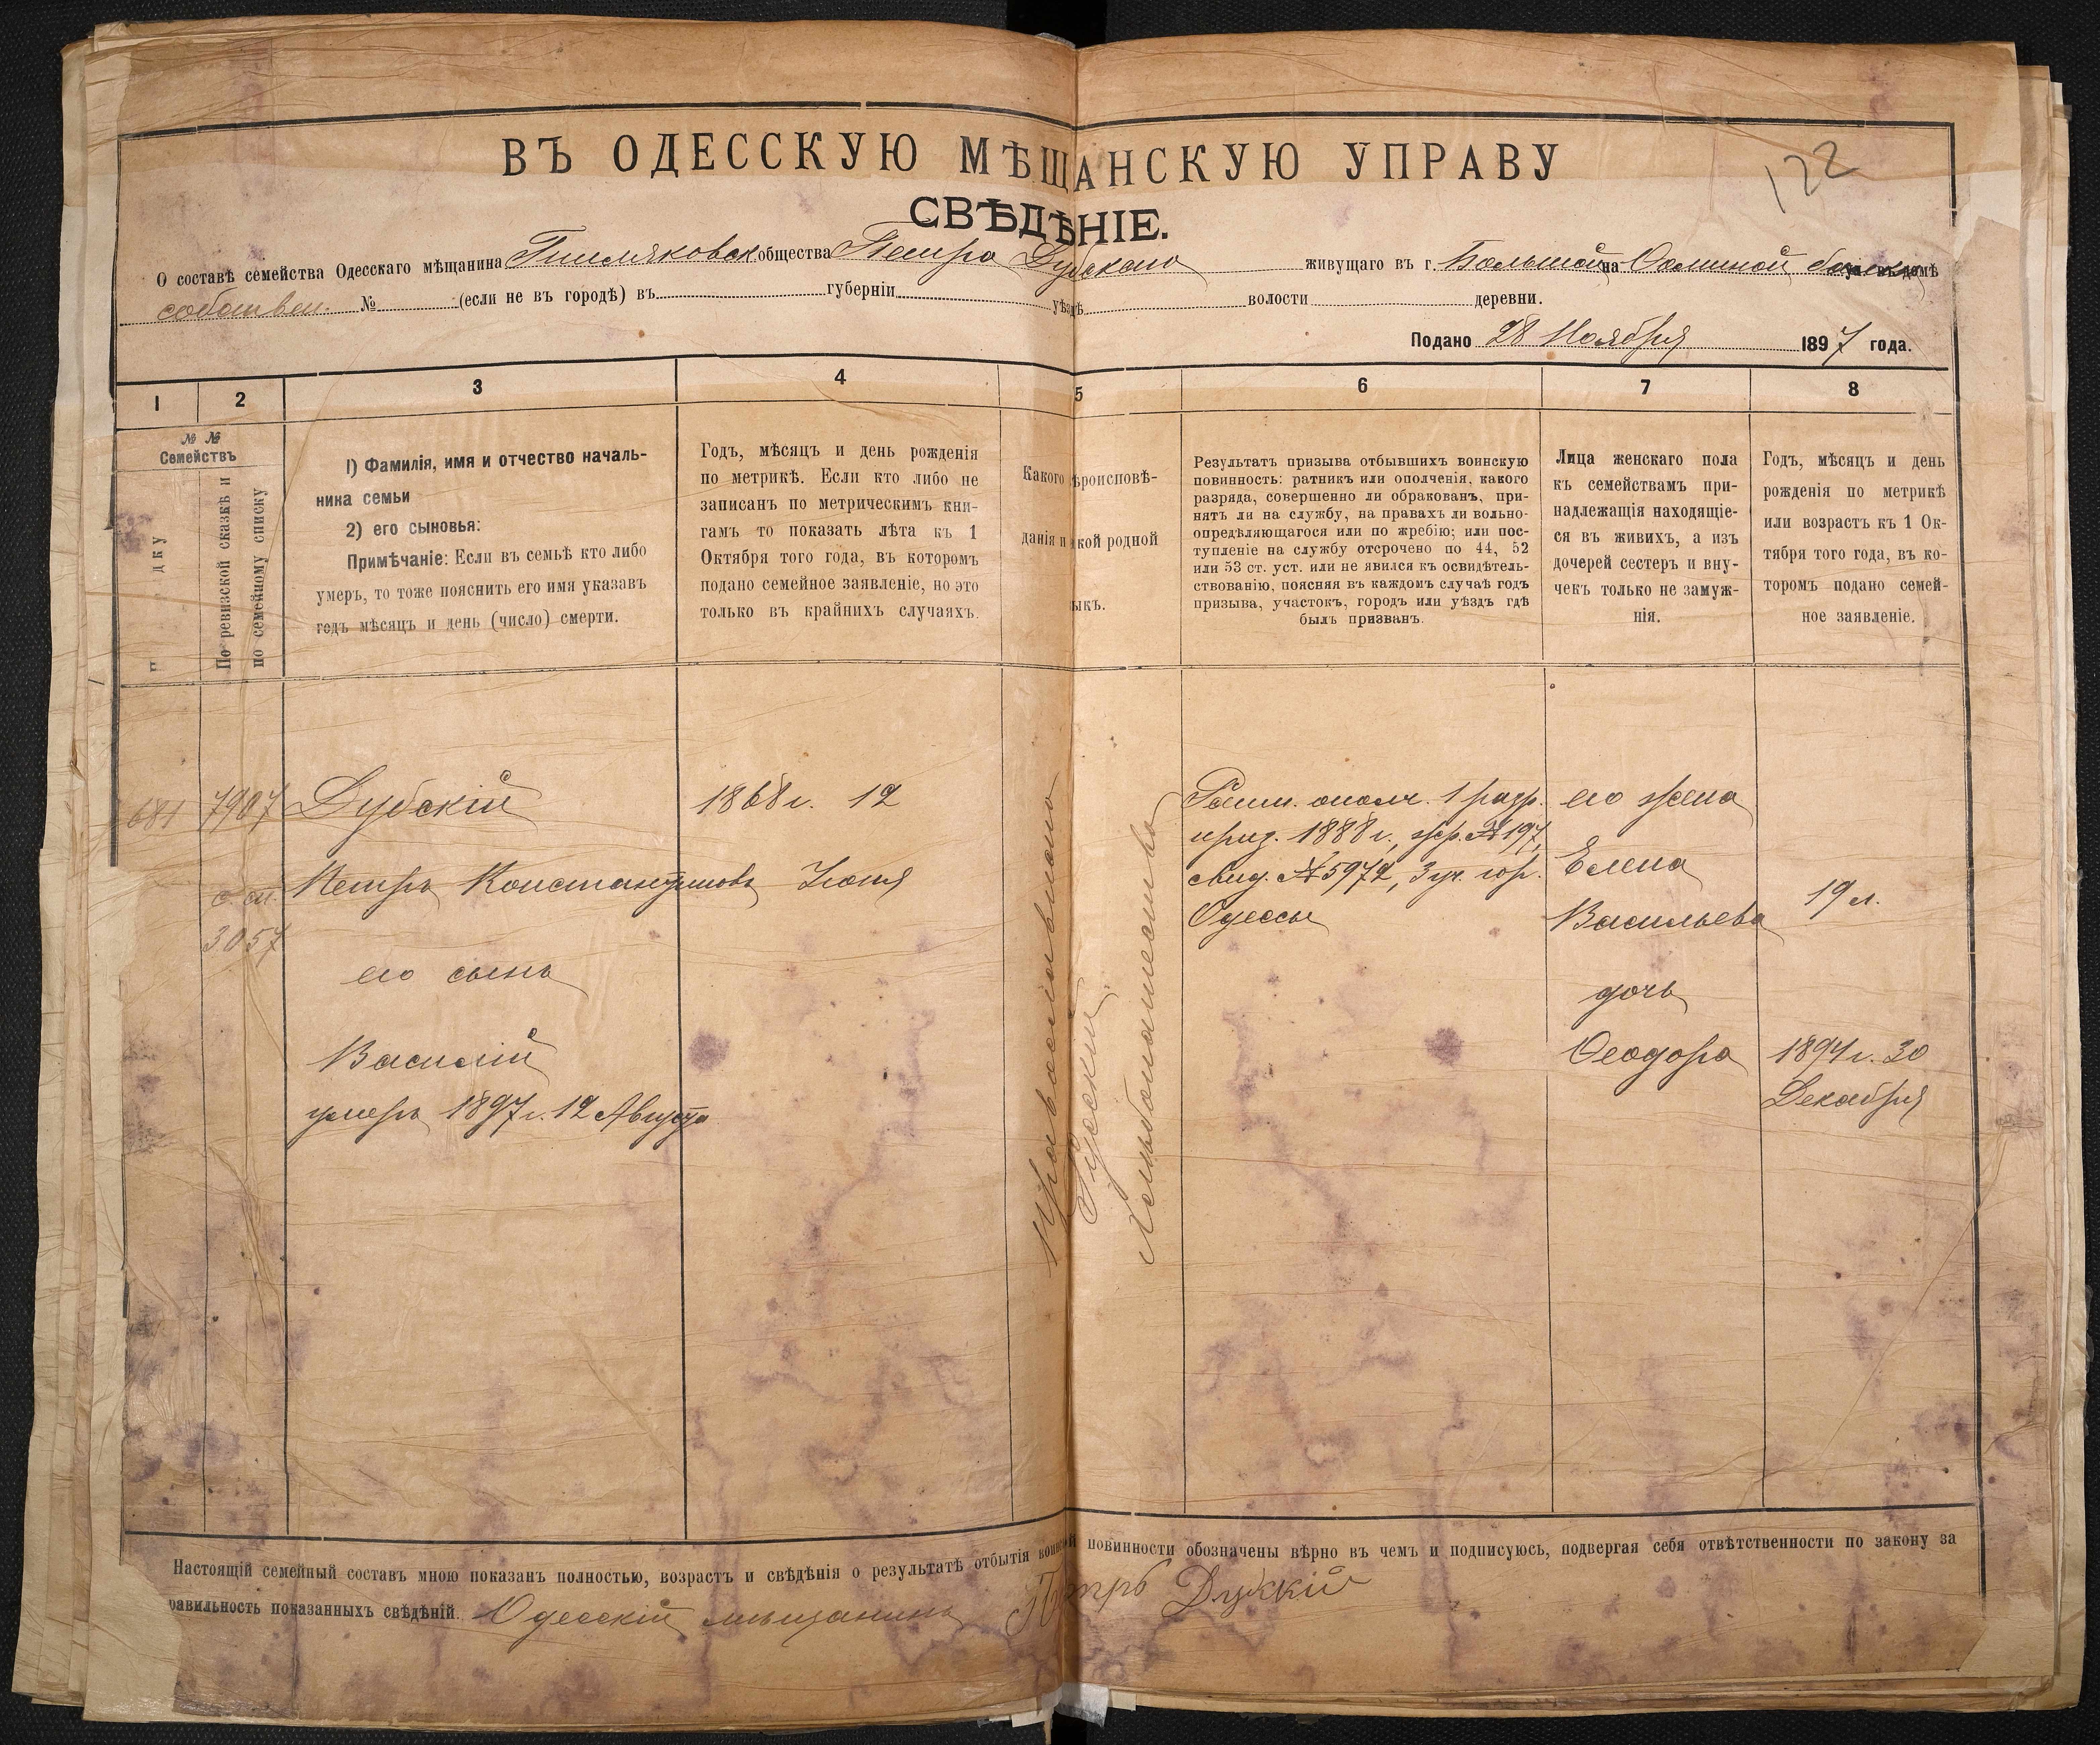 122
ВЪ ОДЕССКУЮ МѢЩАНСКУЮ УПРАВУ
СВѢДѢНІЕ.
О составѣ семейства Одесскаго мѣщанина общества Петра Дубскаго живущаго въ г. Большой на ул. въ домѣ
собствен. № (если не въ городѣ) въ губерніи уѣздѣ волости деревни.
Подано 28 Ноября 1897 года.
1 2 3 4 5 6 7 8
№ №
Семействъ
По ревизской сказкѣ и
по семейному списку
1) Фамилія, имя и отчество началь-
ника семьи
2) его сыновья:
Примѣчаніе: Если въ семьѣ кто либо
умеръ, то тоже пояснить его имя указавъ
годъ мѣсяцъ и день (число) смерти.
Годъ, мѣсяцъ и день рожденія
по метрикѣ. Если кто либо не
записанъ по метрическимъ кни-
гамъ то показать лѣта къ 1
Октября того года, въ которомъ
подано семейное заявленіе, но это
только въ крайнихъ случаяхъ.
Какого ѣроисповѣ-
данія и кой родной
ыкъ.
Результатъ призыва отбывшихъ воинскую
повинность: ратникъ или ополченія, какого
разряда, совершенно ли обракованъ, при-
нятъ ли на службу, на правахъ ли вольно-
опредѣляющагося или по жребію; или пос-
тупленіе на службу отсрочено по 44, 52
или 53 ст. уст. или не явился къ освидѣтель-
ствованію, поясняя въ каждомъ случаѣ годъ
призыва, участокъ, городъ или уѣздъ гдѣ
былъ призванъ.
Лица женскаго пола
къ семействамъ при-
надлежащія находящіе-
ся въ живихъ, а изъ
дочерей сестеръ и вну-
чекъ только не замуж-
нія.
Годъ, мѣсяцъ и день
рожденія по метрикѣ
или возрастъ къ 1 Ок-
тября того года, въ ко-
торомъ подано семей-
ное заявленіе.
681
7907
с. сп.
3057
Дубскій
Петръ Константиновъ
его сынъ
Василій
умеръ 1897 г. 12 Августа
1868 г. 12
Іюня
Православнаго
Русскій
Хлѣбопашество
Ратн. ополч. 1 разр.
приз. 1888 г., жр. № 197,
свид. № 5972, 3 уч. гор.
Одессы
его жена
Елена
Васильева
дочь
Ѳеодора
19 л.
1894 г. 30
Декабря
Настоящій семейный составъ мною показанъ полностью, возрастъ и свѣдѣнія о результатѣ отбытія воинской повинности обозначены вѣрно въ чемъ и подписуюсь, подвергая себя отвѣтственности по закону за
равильность показанныхъ свѣдѣній. Одесскій мѣщанинъ Петръ Дубскій